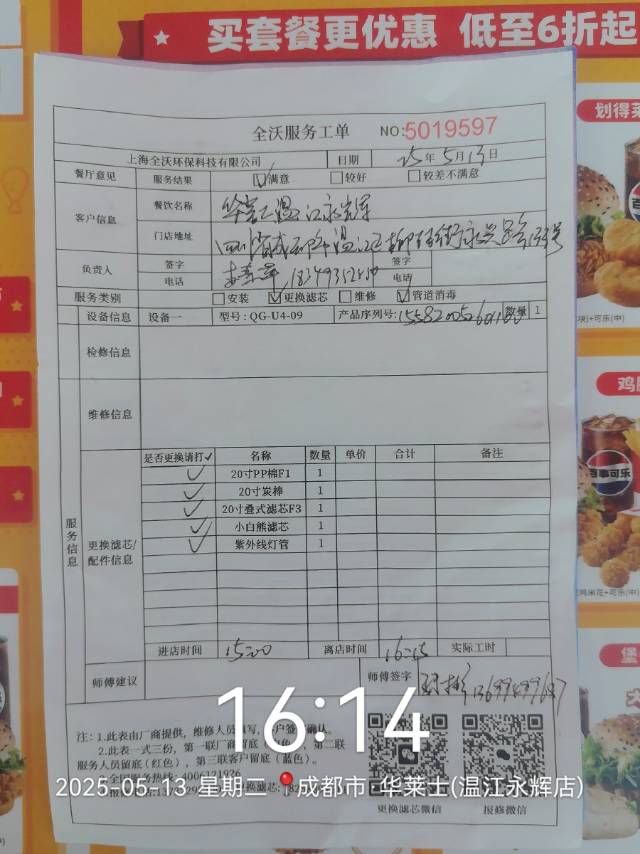 买套餐更优惠 低至6折起
划得
全沃服务工单 NO:5019597
上海全沃环保科技有限公司 日期 25年5月13日
餐厅意见 服务结果 ☑满意 □较好 □较差不满意
客户信息 餐饮名称 华莱士温江永辉
门店地址
负责人 签字 签字
电话 电话
服务类别 □安装 ☑更换滤芯 □维修 ☑管道消毒
设备信息 设备一 型号:QG-U4-09 产品序列号: 数量 1
检修信息
维修信息
服务信息
更换滤芯/配件信息
是否更换请打✓ 名称 数量 单价 合计 备注
✓ 20寸PP棉F1 1
✓ 20寸炭棒 1
✓ 20寸叠式滤芯F3 1
✓ 小白熊滤芯 1
✓ 紫外线灯管 1
进店时间 15:00 离店时间 16:15 实际工时
师傅建议 师傅签字
注:1.此表由厂商提供,维修人员填写,客户签字确认。
2.此表一式三份,第一联厂商留底
第二联
服务人员留底(红色),第三联客户留底(蓝色)。
更换滤芯微信 报修微信
16:14
2025-05-13 星期二 成都市·华莱士(温江永辉店)
百事可乐
鸡
堡